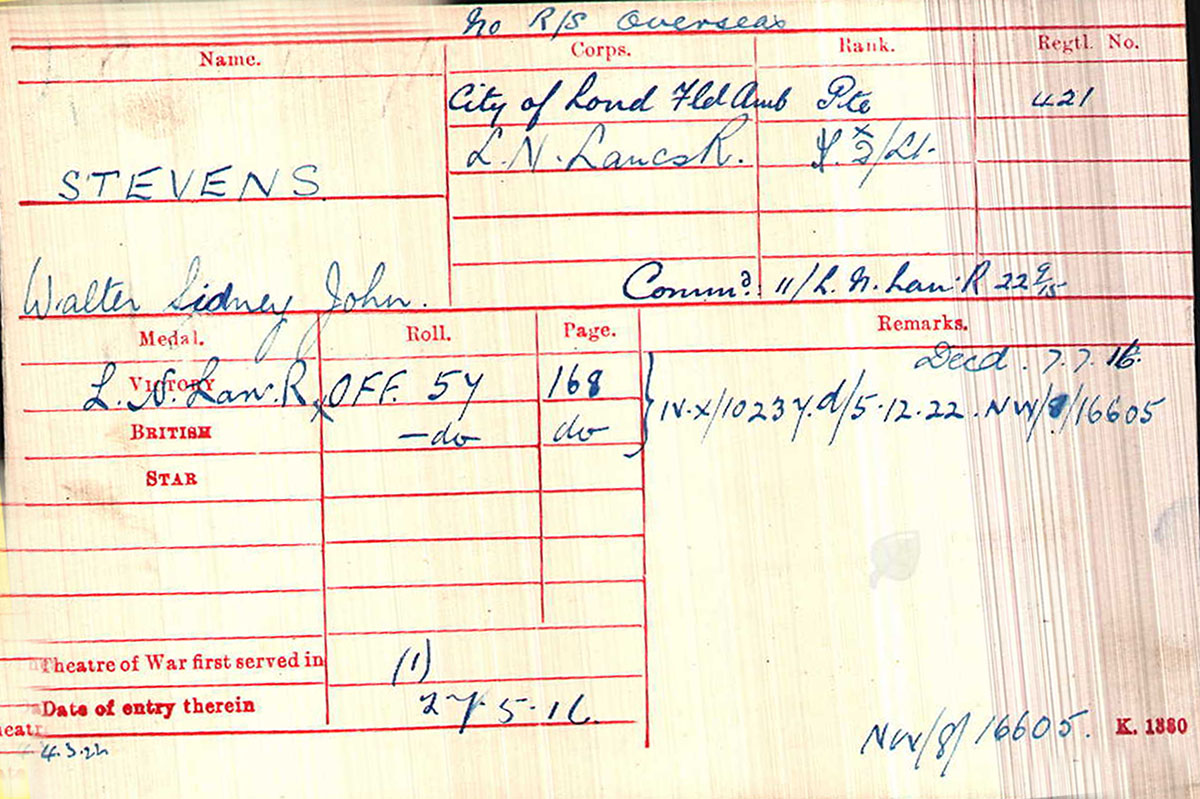 No R/S Overseas
Name. Corps. Rank. Regtl. No.
City of Lond Fld Amb Pte 421
L. N. Lancs R. 2/Lt.
STEVENS
Walter Sidney John.
Commd. 11/L. N. Lan. R 22/9/15
Medal. Roll. Page. Remarks.
Decd. 7.7.16.
VICTORY L. N. Lan. R x OFF. 57 168
IV.X/10237.d/5.12.22. NW/8/16605
BRITISH -do- do
STAR
Theatre of War first served in (1)
Date of entry therein 27.5.16.
4.3.22
NW/8/16605. K. 1380